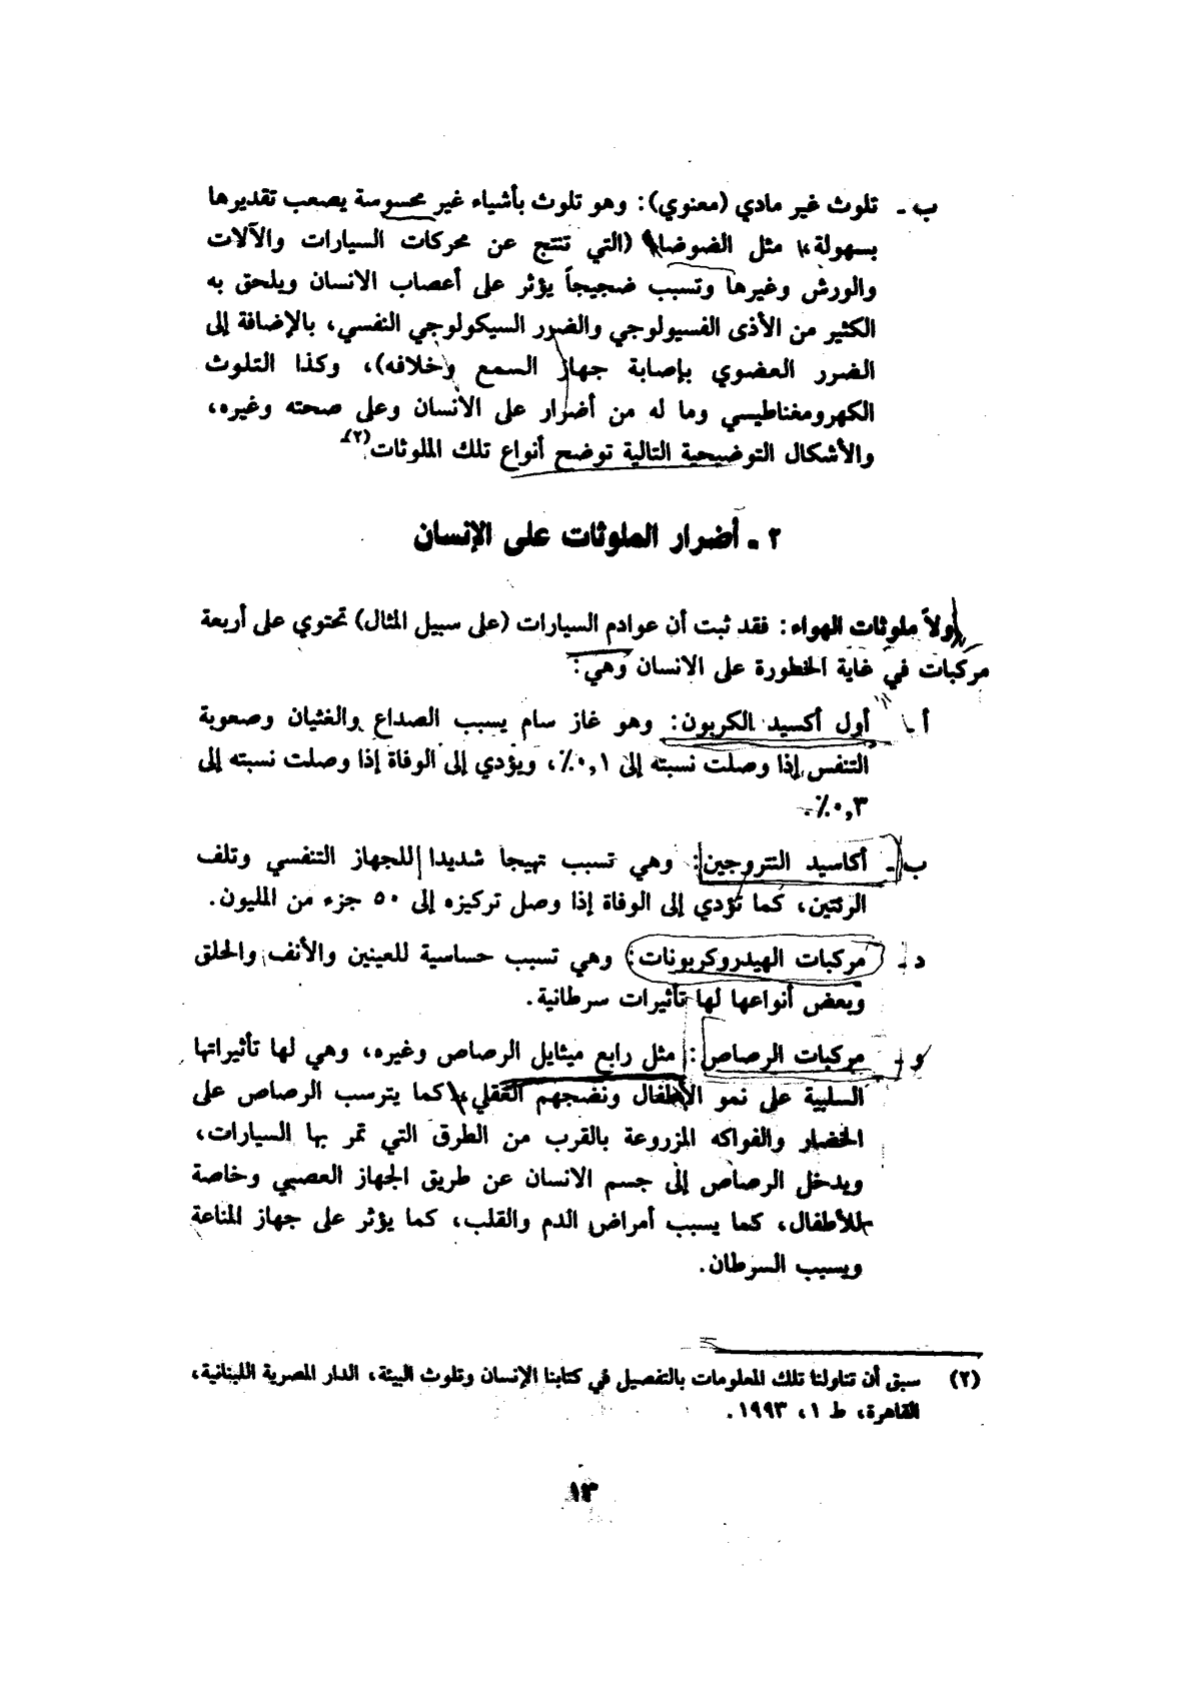 ب ـ تلوث غير مادي (معنوي): وهو تلوث بأشياء غير محسوسة يصعب تقديرها
بسهولة، مثل الضوضاء (التي تنتج عن محركات السيارات والآلات
والورش وغيرها وتسبب ضجيجاً يؤثر على أعصاب الانسان ويلحق به
الكثير من الأذى الفسيولوجي والضرر السيكولوجي النفسي، بالإضافة إلى
الضرر العضوي بإصابة جهاز السمع وخلافه)، وكذا التلوث
الكهرومغناطيسي وما له من أضرار على الانسان وعلى صحته وغيره،
والأشكال التوضيحية التالية توضح أنواع تلك الملوثات(٢).
٢ ـ أضرار الملوثات على الإنسان
أولاً ملوثات الهواء: فقد ثبت أن عوادم السيارات (على سبيل المثال) تحتوي على أربعة
مركبات في غاية الخطورة على الانسان وهي:
أ ـ أول أكسيد الكربون: وهو غاز سام يسبب الصداع والغثيان وصعوبة
التنفس إذا وصلت نسبته إلى ٠,١٪، ويؤدي إلى الوفاة إذا وصلت نسبته إلى
٠,٣٪.
ب ـ أكاسيد النتروجين: وهي تسبب تهيجا شديدا للجهاز التنفسي وتلف
الرئتين، كما تؤدي إلى الوفاة إذا وصل تركيزه إلى ٥٠ جزء من المليون.
د ـ مركبات الهيدروكربونات: وهي تسبب حساسية للعينين والأنف والحلق
وبعض أنواعها لها تأثيرات سرطانية.
و ـ مركبات الرصاص: مثل رابع ميثايل الرصاص وغيره، وهي لها تأثيراتها
السلبية على نمو الأطفال ونضجهم العقلي، كما يترسب الرصاص على
الخضار والفواكه المزروعة بالقرب من الطرق التي تمر بها السيارات،
ويدخل الرصاص إلى جسم الانسان عن طريق الجهاز العصبي وخاصة
للأطفال، كما يسبب أمراض الدم والقلب، كما يؤثر على جهاز المناعة
ويسبب السرطان.
(٢) سبق أن تناولنا تلك المعلومات بالتفصيل في كتابنا الإنسان وتلوث البيئة، الدار المصرية اللبنانية،
القاهرة، ط ١، ١٩٩٣.
١٣